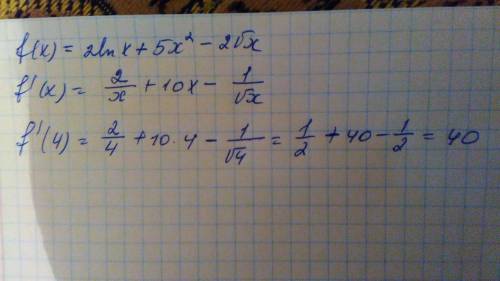 f(x) = 2ln x + 5x² - 2√x
f'(x) = 2/x + 10x - 1/√x
f'(4) = 2/4 + 10·4 - 1/√4 = 1/2 + 40 - 1/2 = 40